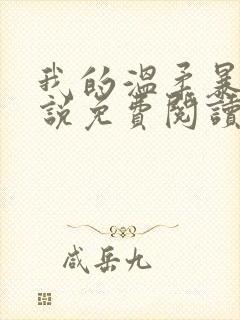 我的温柔暴
说免费阅读
咸岳九